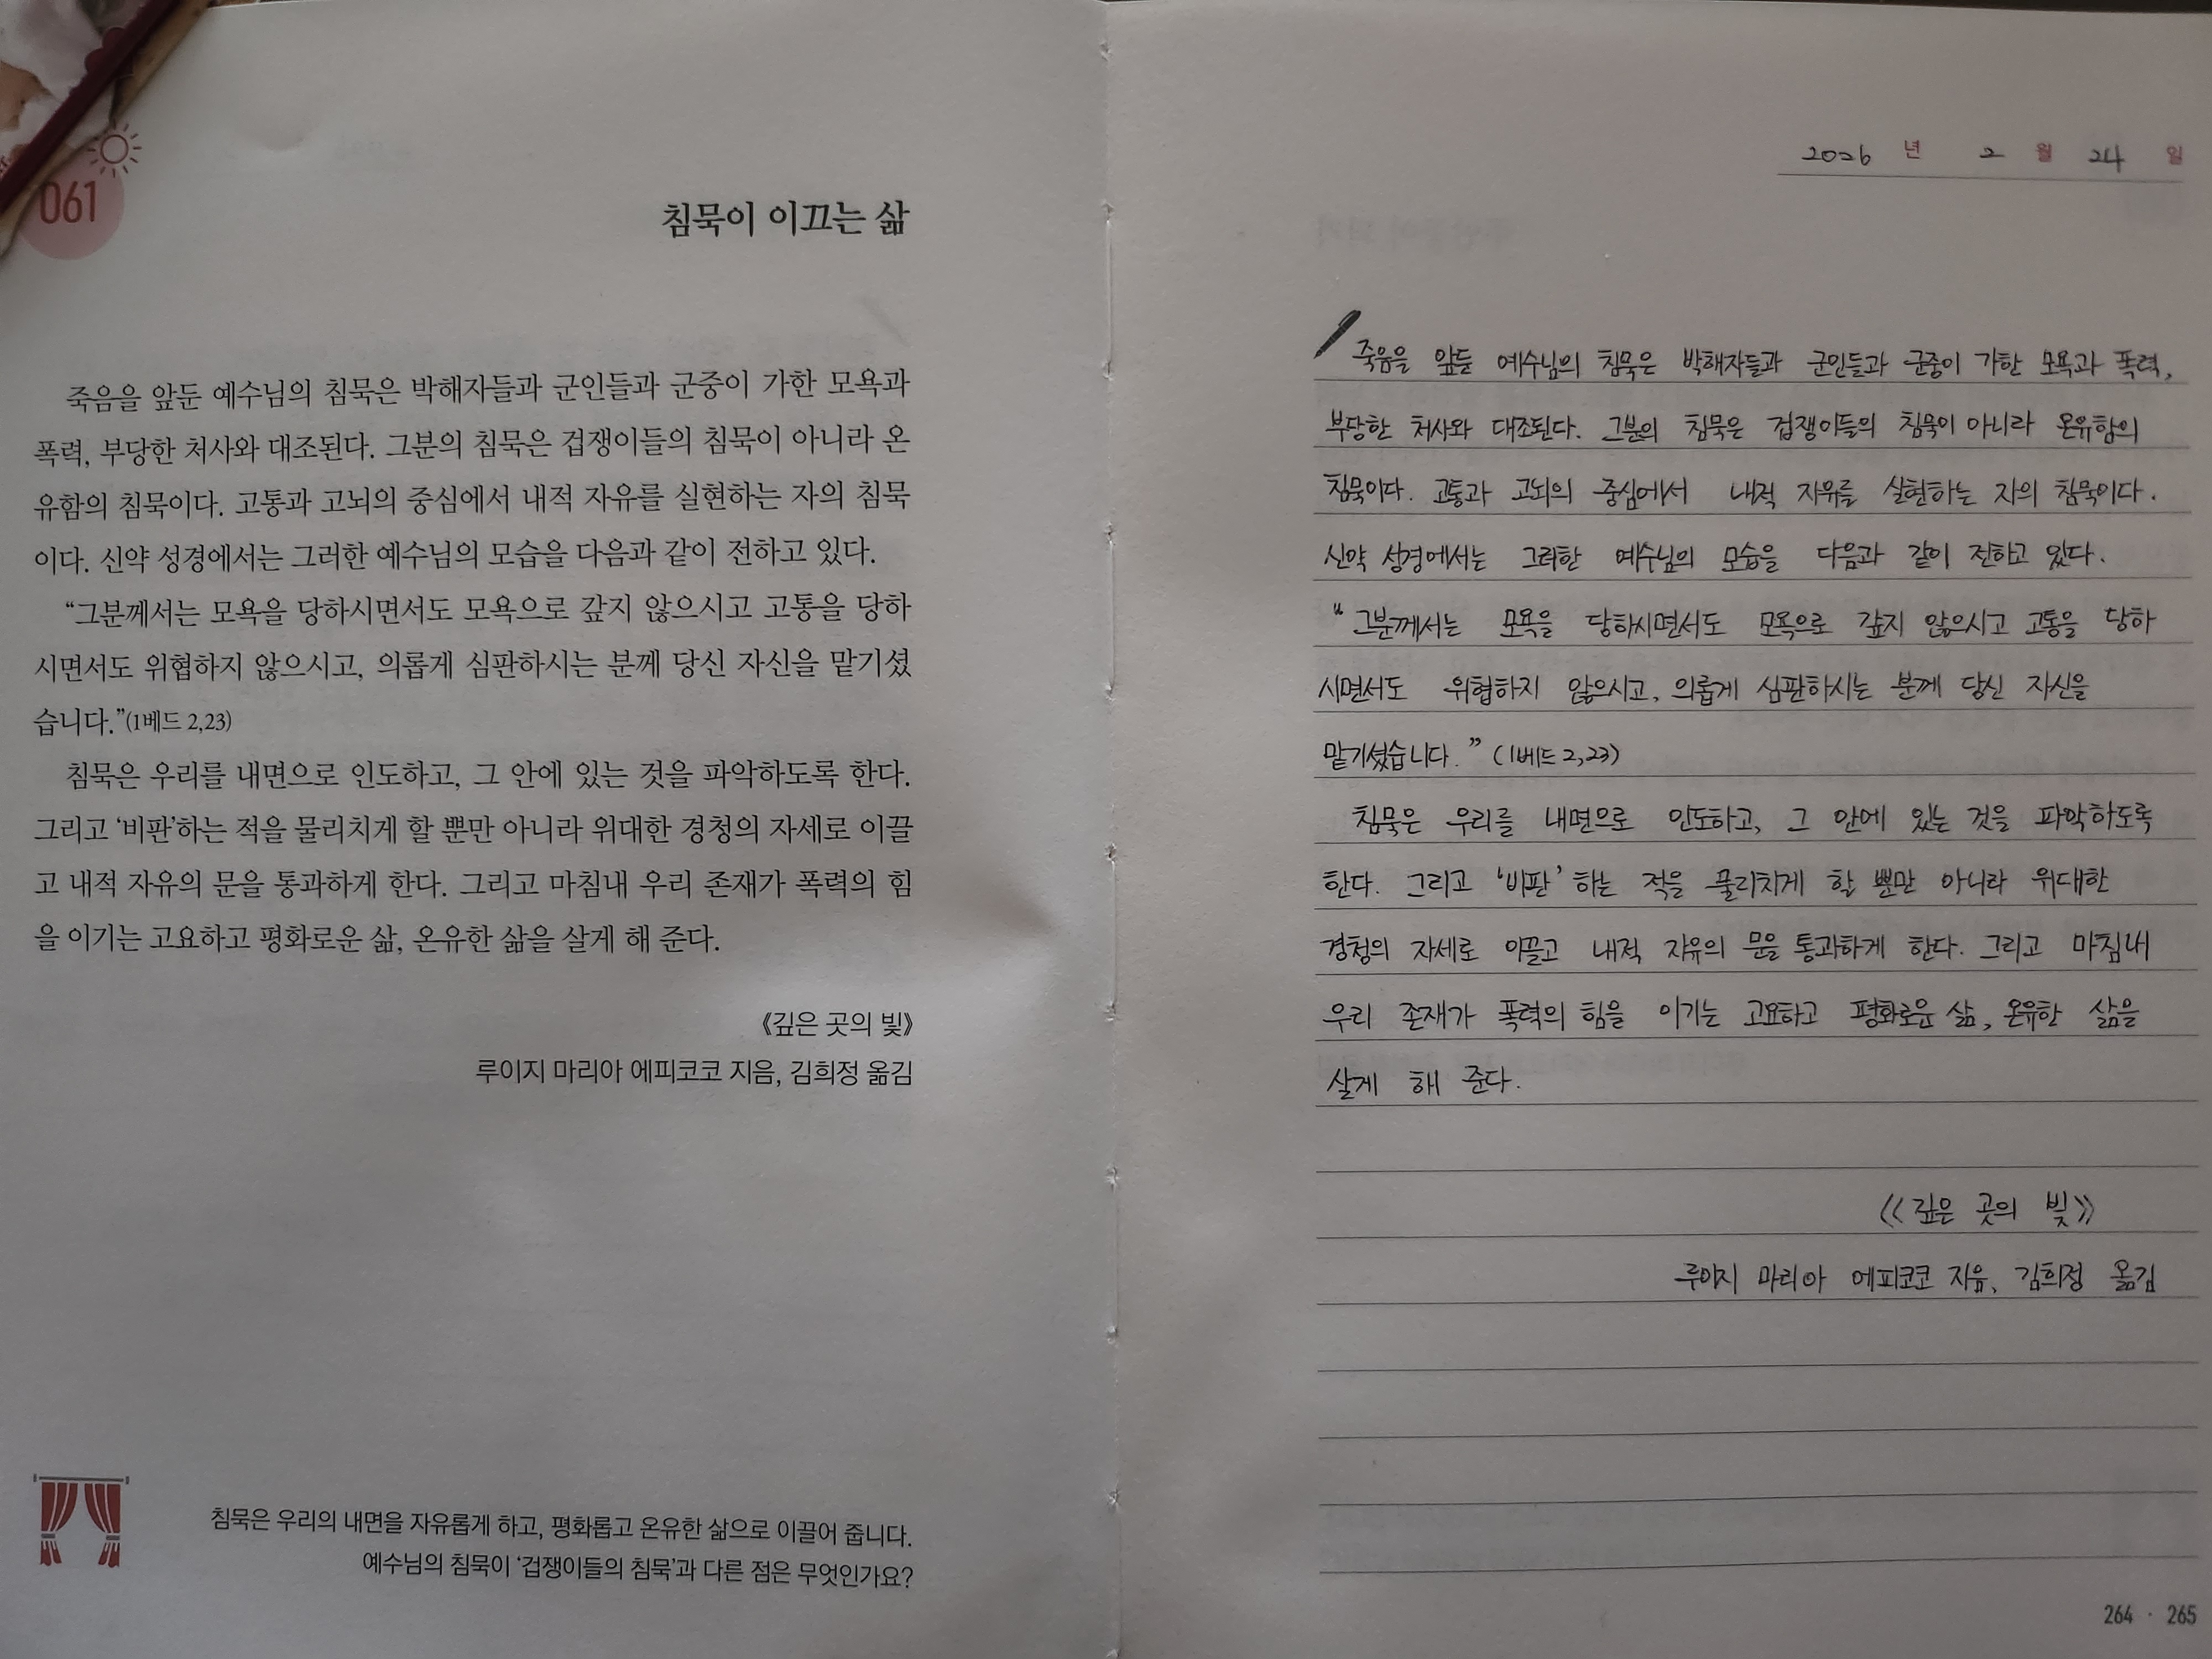 061
침묵이 이끄는 삶
죽음을 앞둔 예수님의 침묵은 박해자들과 군인들과 군중이 가한 모욕과
폭력, 부당한 처사와 대조된다. 그분의 침묵은 겁쟁이들의 침묵이 아니라 온
유함의 침묵이다. 고통과 고뇌의 중심에서 내적 자유를 실현하는 자의 침묵
이다. 신약 성경에서는 그러한 예수님의 모습을 다음과 같이 전하고 있다.
“그분께서는 모욕을 당하시면서도 모욕으로 갚지 않으시고 고통을 당하
시면서도 위협하지 않으시고, 의롭게 심판하시는 분께 당신 자신을 맡기셨
습니다.”(1베드 2,23)
침묵은 우리를 내면으로 인도하고, 그 안에 있는 것을 파악하도록 한다.
그리고 ‘비판’하는 적을 물리치게 할 뿐만 아니라 위대한 경청의 자세로 이끌
고 내적 자유의 문을 통과하게 한다. 그리고 마침내 우리 존재가 폭력의 힘
을 이기는 고요하고 평화로운 삶, 온유한 삶을 살게 해 준다.
《깊은 곳의 빛》
루이지 마리아 에피코코 지음, 김희정 옮김
침묵은 우리의 내면을 자유롭게 하고, 평화롭고 온유한 삶으로 이끌어 줍니다.
예수님의 침묵이 ‘겁쟁이들의 침묵’과 다른 점은 무엇인가요?
2026 년 2 월 24 일
죽음을 앞둔 예수님의 침묵은 박해자들과 군인들과 군중이 가한 모욕과 폭력,
부당한 처사와 대조된다. 그분의 침묵은 겁쟁이들의 침묵이 아니라 온유함의
침묵이다. 고통과 고뇌의 중심에서 내적 자유를 실현하는 자의 침묵이다.
신약 성경에서는 그러한 예수님의 모습을 다음과 같이 전하고 있다.
“그분께서는 모욕을 당하시면서도 모욕으로 갚지 않으시고 고통을 당하
시면서도 위협하지 않으시고, 의롭게 심판하시는 분께 당신 자신을
맡기셨습니다.” (1베드 2,23)
침묵은 우리를 내면으로 인도하고, 그 안에 있는 것을 파악하도록
한다. 그리고 ‘비판’하는 적을 물리치게 할 뿐만 아니라 위대한
경청의 자세로 이끌고 내적 자유의 문을 통과하게 한다. 그리고 마침내
우리 존재가 폭력의 힘을 이기는 고요하고 평화로운 삶, 온유한 삶을
살게 해 준다.
《깊은 곳의 빛》
루이지 마리아 에피코코 지음, 김희정 옮김
264 · 265